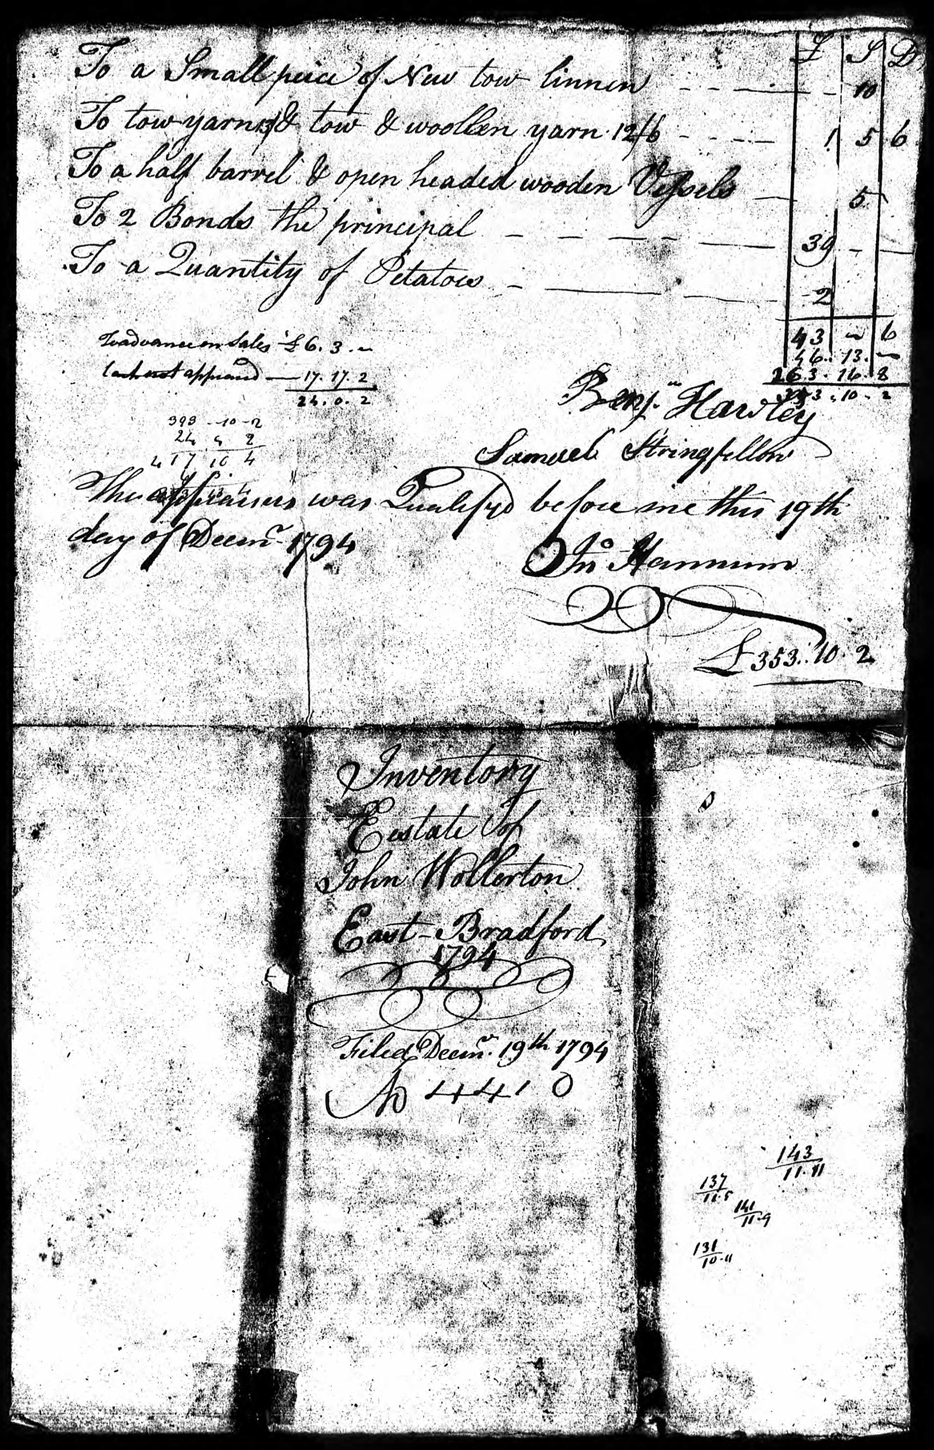 £ S D
To a Small peice of New tow linnen - - - 10
To tow yarn & tow & woollen yarn 12/6 - - - 1 5 6
To a half barrel & open headed wooden Vessels - 5
To 2 Bonds the principal - - - 39 - -
To a Quantity of Petatoes - - 2
43 - 6
46 . 13 . -
263 . 16 . 8
353 . 10 . 2
To advance on Sales £ 6 . 3 . -
Cash not appraised - 17 . 17 . 2
24 . 0 . 2
Benjn. Hawley
393 - 10 - 2
417 10 4
Samuel Stringfellow
The appraisers was Qualifyd before me this 19th
day of Decmr. 1794
Jno. Hannum
£ 353 . 10 . 2
Inventory
Eestate of
John Wollerton
East - Bradford
1794
Filed Decmr. 19th 1794
No 4410
143
11.11
137
11.5
141
11.9
131
10.11